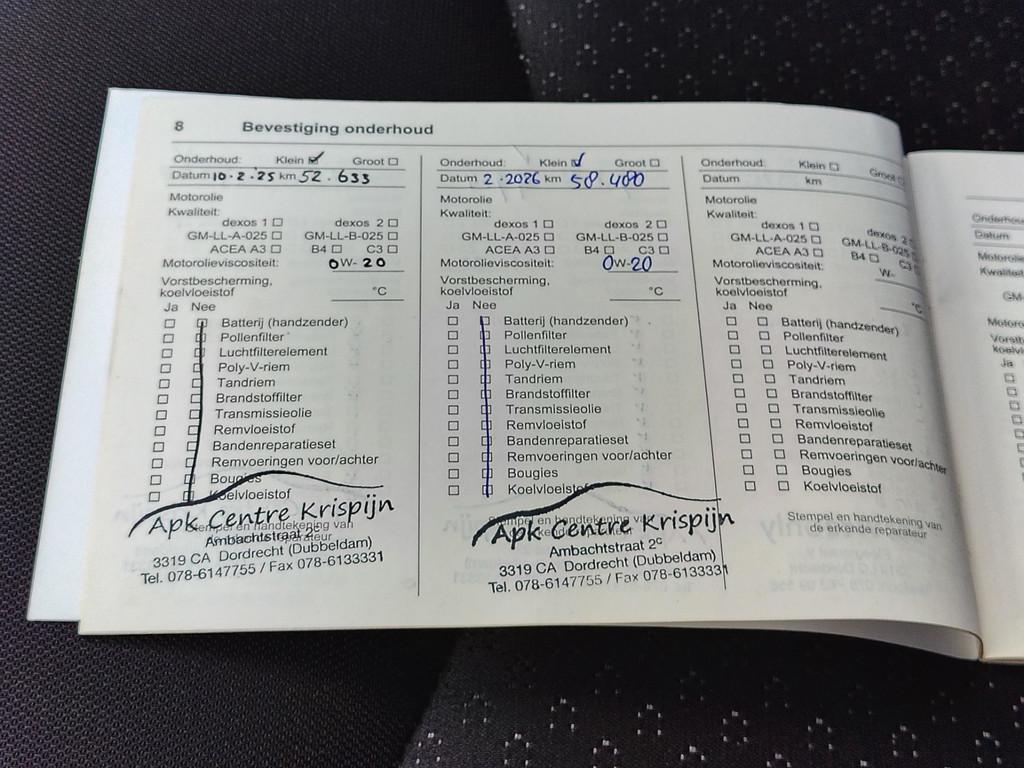 8 Bevestiging onderhoud
Onderhoud: Klein ☑ Groot ☐
Datum 10-2-25 km 52.633
Motorolie
Kwaliteit:
dexos 1 ☐ dexos 2 ☐
GM-LL-A-025 ☐ GM-LL-B-025 ☐
ACEA A3 ☐ B4 ☐ C3 ☐
Motorolieviscositeit: 0W-20
Vorstbescherming,
koelvloeistof °C
Ja Nee
☐ ☐ Batterij (handzender)
☐ ☐ Pollenfilter
☐ ☐ Luchtfilterelement
☐ ☐ Poly-V-riem
☐ ☐ Tandriem
☐ ☐ Brandstoffilter
☐ ☐ Transmissieolie
☐ ☐ Remvloeistof
☐ ☐ Bandenreparatieset
☐ ☐ Remvoeringen voor/achter
☐ ☐ Bougies
☐ ☐ Koelvloeistof
Stempel en handtekening van
Apk Centre Krispijn
Ambachtstraat 2c
3319 CA Dordrecht (Dubbeldam)
Tel. 078-6147755 / Fax 078-6133331
Onderhoud: Klein ☑ Groot ☐
Datum 2-2026 km 58.480
Motorolie
Kwaliteit:
dexos 1 ☐ dexos 2 ☐
GM-LL-A-025 ☐ GM-LL-B-025 ☐
ACEA A3 ☐ B4 ☐ C3 ☐
Motorolieviscositeit: 0W-20
Vorstbescherming,
koelvloeistof °C
Ja Nee
☐ ☐ Batterij (handzender)
☐ ☐ Pollenfilter
☐ ☐ Luchtfilterelement
☐ ☐ Poly-V-riem
☐ ☐ Tandriem
☐ ☐ Brandstoffilter
☐ ☐ Transmissieolie
☐ ☐ Remvloeistof
☐ ☐ Bandenreparatieset
☐ ☐ Remvoeringen voor/achter
☐ ☐ Bougies
☐ ☐ Koelvloeistof
Stempel en handtekening van
Apk Centre Krispijn
Ambachtstraat 2c
3319 CA Dordrecht (Dubbeldam)
Tel. 078-6147755 / Fax 078-6133331
Onderhoud: Klein ☐ Groot ☐
Datum km
Motorolie
Kwaliteit:
dexos 1 ☐ dexos 2 ☐
GM-LL-A-025 ☐ GM-LL-B-025
ACEA A3 ☐ B4 ☐ C3
Motorolieviscositeit: W-
Vorstbescherming,
koelvloeistof °C
Ja Nee
☐ ☐ Batterij (handzender)
☐ ☐ Pollenfilter
☐ ☐ Luchtfilterelement
☐ ☐ Poly-V-riem
☐ ☐ Tandriem
☐ ☐ Brandstoffilter
☐ ☐ Transmissieolie
☐ ☐ Remvloeistof
☐ ☐ Bandenreparatieset
☐ ☐ Remvoeringen voor/achter
☐ ☐ Bougies
☐ ☐ Koelvloeistof
Stempel en handtekening van
de erkende reparateur
Datum
Ja